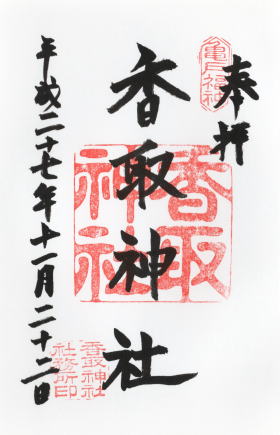 奉拝
亀戸福神
香取神社
香取神社
平成二十七年十一月二十二日
香取神社
社務所印